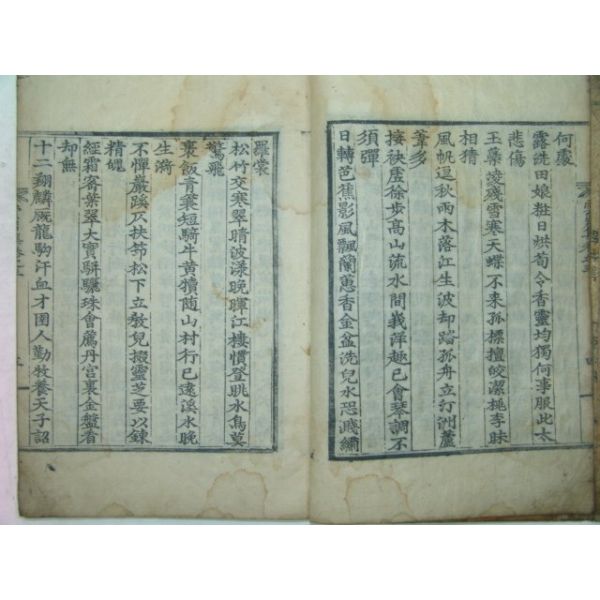 何處
露洗田娘粧日烘荀令香靈均獨何事服此太
悲傷
玉蘂凌殘雪寒天蝶不來孤標擅皎潔桃李昧
相猜
風帆逗秋雨木落江生波却踏孤舟立汀洲蘆
葦多
接袂虛徐步高山流水間義萍趣已會琴調不
須彈
日轉芭蕉影風飄蘭蕙香金盆洗兒水恐濺繡
羅裳
松竹交寒翠晴波漾晚暉江樓慣登眺水鳥莫
驚飛
裹飯青蒙短騎牛黃犢隨山村行已遠溪水晚
生漪
不憚巖蹊仄扶笻松下立敎兒掇靈芝要以鍊
精魄
經霜窓葉翠大實駢驪珠會薦丹宮裏金盤看
却無
十二翔麟厩龍駒汗血才圉人勤牧養天子詔